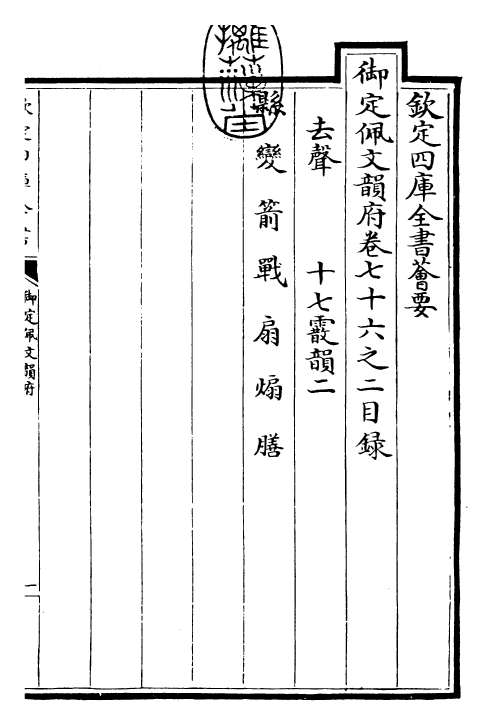 欽定四庫全書薈要
御定佩文韻府卷七十六之二目録
去聲 十七霰韻二
縣變箭戰扇煽膳
御定佩文韻府
一